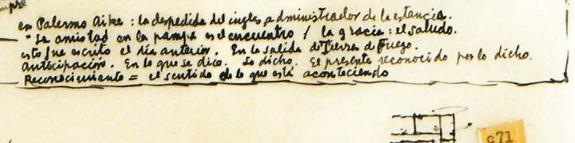 en Palermo Aike: la despedida del ingles, administrador de la estancia.
"La amistad en la pampa es el encuentro / la gracia: el saludo.
esto fue escrito el día anterior. En la salida de Tierra de Fuego.
Anticipación. En lo que se dice. Lo dicho. El presente reconocido por lo dicho.
Reconocimiento = el sentido de lo que está aconteciendo
971